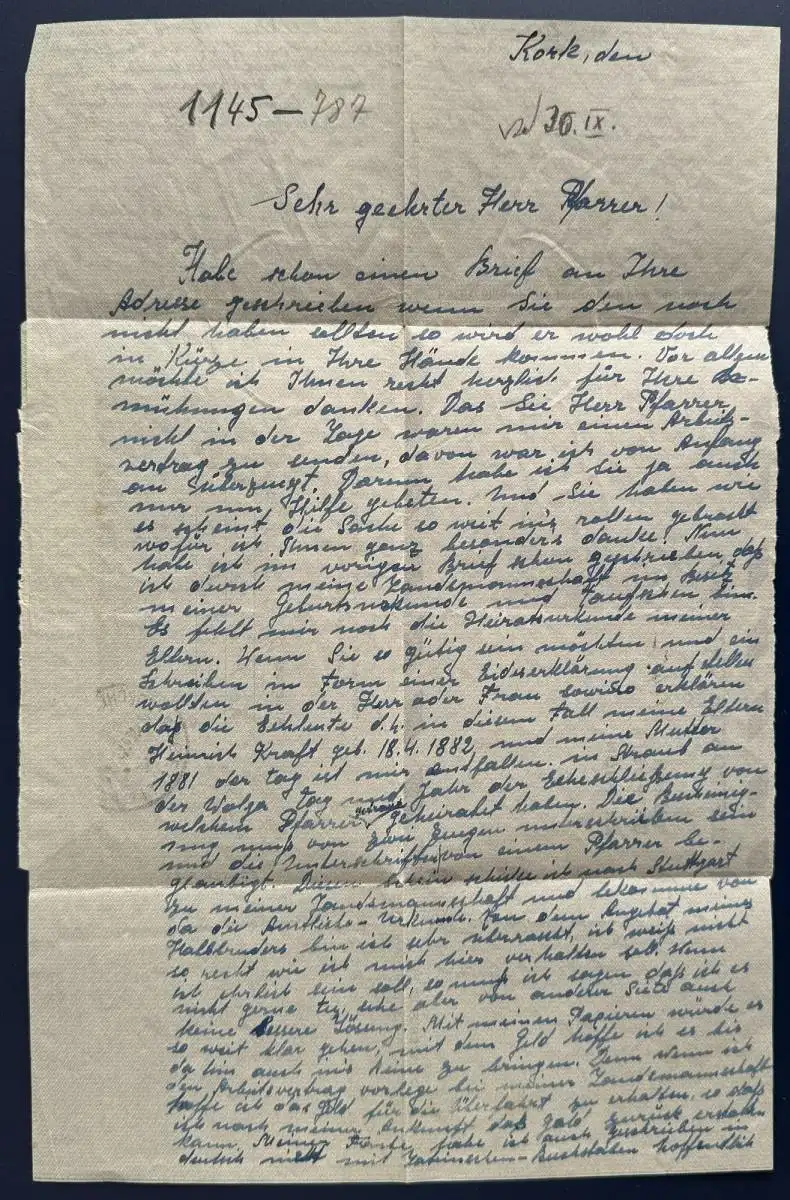 Kork, den
1145–787
30. IX.
Sehr geehrter Herr Pfarrer!
Habe schon einen Brief an Ihre
Adresse geschrieben wenn Sie den noch
nicht haben sollten so wird er wohl doch
in Kürze in Ihre Hände kommen. Vor allgem
möchte ich Ihnen recht herzlich für Ihre Be-
mühungen danken. Das Sie Herr Pfarrer
nicht in der Lage waren mir einen Arbeits-
vertrag zu senden, davon war ich von Anfang
an überzeugt. Darum habe ich Sie ja auch
nur um Hilfe gebeten. Und Sie haben wie
es scheint die Sache so weit ins rollen gebracht
wofür ich Ihnen ganz besonders danke! Nun
habe ich im vorigen Brief schon geschrieben daß
ich durch meine Landsmannschaft im Besitz
meiner Geburtsurkunde und Taufschein bin.
Es fehlt mir noch die Heiratsurkunde meiner
Eltern. Wenn Sie so gütig sein möchten und ein
Schreiben in Form einer Eideserklärung aufstellen
wollten in der Herr oder Frau sowiso erklären
daß die Eheleute d.h. in diesem Fall meine Eltern
Heinrich Kraft geb. 18.4.1882, und meine Mutter
1881 der tag ist mir entfallen. in Straub an
der Wolga Tag und Jahr der Eheschließung von
welchem Pfarrer geheiratet haben. Die Bescheinig-
ung muß von zwei Zeugen unterschrieben sein
und die Unterschriften von einem Pfarrer be-
glaubigt. Diesen Schein schicke ich nach Stuttgart
zu meiner Landsmannschaft und bekomme von
da die Amtliche-Urkunde. Von dem Angebot meines
Halbbruders bin ich sehr überrascht, ich weiß nicht
so recht wie ich mich hier verhalten soll. Wenn
ich ehrlich sein soll, so muß ich sagen daß ich es
nicht gerne tu, sehe aber von anderer Siete auch
keine bessere Lösung. Mit meinen Papieren würde es
so weit klar gehen, mit dem Geld hoffe ich es bis
da hin auch ins Reine zu bringen. Denn wenn ich
den Arbeitsvertrag vorlege bei meiner Landsmannschaft
hoffe ich das Geld für die Überfahrt zu erhalten. so daß
ich nach meiner Ankunft das geld zurück erstatten
kann. Meiner Tante habe ich auch geschrieben in
deutsch nicht mit Lateinischen-Buchstaben hoffentlich